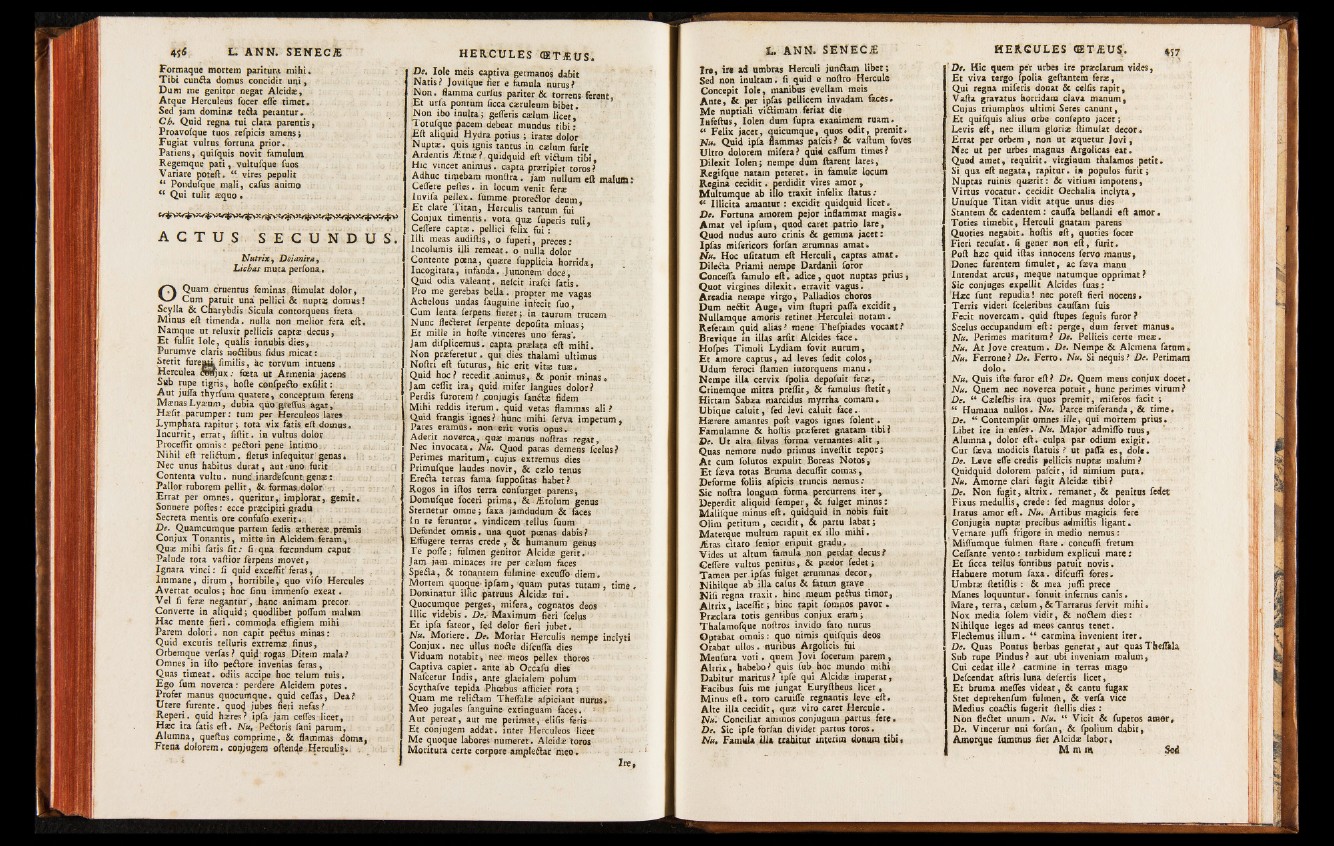 456 L. ANN. SENECÆ
Formaque mortem paritura mihi.
Tibi cuncta domus concidit uni,
Dum me genitor negat Alcidæ,
Atque Herculeus focer esse timet.
Sed jam dominæ tecta petantur.
Ch. Quid regna tui clara parentis,
Proavosque tuos respicis amens;
Fugiat vultus fortuna prior.
Patiens, quisquis novit famulum
Regemque pati, vultusque suos
Variare potest. “ vires pepulit
“ Pondusque mali, casus animo
“ Qui tulit æquo.
ACTUS SECUNDUS.
Nutrix, Deianira,
Lichas muta persona.
O Quam cruentus feminas stimulat dolor,
Cum patuit una pellici & nuptæ domus!
Scylla & Charybdis Sicula contorquens freta
Minus est timenda. nulla non melior fera est.
Namque ut reluxit pellicis captæ decus,
Et fulsit Iole, qualis innubis dies,
Purumve claris noctibus sidus micat:
Stetit similis, ac torvum intuens
Herculea : fœta ut Armenia jacens
Sub rupe tigris, hoste conspecto exsilit:
Aut jussa thyrsum quatere, conceptum ferens
Mænas Lyæum, dubia quo gressus agat,
Hæsit parumper: tum per Herculeos lares
Lymphata rapitur; tota vix satis est domus.
Incurrit, errat, sistit. in vultus dolor
Processit omnis: pectori pene intimo
Nihil est relictum. fletus insequitur genas.
Nec unus habitus durat, aut uno furit
Contenta vultu. nunc inardescunt genæ:
Pallor ruborem pellit, & formas dolor
Errat per omnes. queritur, implorat, gemit.
Sonnere postes: ecce præcipiti gradu
Secreta mentis ore confuso exerit.
De. Quamcumque partem sedis æthereæ premis
Conjux Tonantis, mitte in Alcidem feram,
Quæ mihi satis sit: si qua fœcundum caput
Palude tota vastior serpens movet,
Ignara vinci: si quid excessit feras,
Immane, dirum, horribile, quo viso Hercules
Avertat oculos; hoc sinu immenso exeat.
Vel si feræ negantur, hanc animam precor
Converte in aliquid; quodlibet possum malum
Hac mente fieri. commoda effigiem mihi
Parem dolori. non capit pectus minas:
Quid excutis telluris extremæ sinus,
Orbemque versas? quid rogas Ditem mala?
Omnes in isto pectore invenias feras,
Quas timeat. odiis accipe hoc telum tuis.
Ego sum noverca: perdere Alcidem potes.
Profer manus quocumque. quid cessas, Dea?
Utere furente. quod jubes fieri nefas?
Reperi. quid hæres? ipsa jam cesses licet,
Hæc ira satis est. Nu. Pectoris sani parum,
Alumna, questus comprime, & flammas doma,
Frena dolorem. conjugem ostende Herculis.
HERCULES ŒTÆUS.
De. Iole meis captiva germanos dabit
Natis? Jovisque fiet e famula nurus?
Non. flamma cursus pariter & torrens ferent,
Et ursa pontum sicca cæruleum bibet.
Non ibo inulta; gesseris cælum licet,
Totusque pacem debeat mundus tibi:
Est aliquid Hydra potius; iratæ dolor
Nuptæ. quis ignis tantus in cælum furit
Ardentis Ætnæ? quidquid est victum tibi,
Hic vincet animus. capta præripiet toros?
Adhuc timebam monstra. jam nullum est malum:
Cessere pestes. in locum venit feræ
Invisa pellex. summe prorector deum,
Et clare Titan, Herculis tantum fui
Conjux timentis. vota quæ superis tuli,
Cessere captæ. pellici felix fui:
Illi meas audistis, o superi, preces:
Incolumis illi remeat. o nulla dolor
Contente pœna, quære supplicia horrida,
Incogitata, infanda. Junonem doce,
Quid odia valeant. nescit irasci satis.
Pro me gerebas bella. propter me vagas
Achelous undas sanguine infecit suo,
Cum lenta serpens fieret; in taurum trucem
Nunc flecteret serpente deposita minas;
Et mille in hoste vinceres uno feras.
Jam displicemus. capta prælata est mihi.
Non præferetur. qui dies thalami ultimus
Nostri est futurus, hic erit vitæ tuæ.
Quid hoc? recedit animus, & ponit minas.
Jam cessit ira, quid miser langues dolor?
Perdis furorem? conjugis sanctæ fidem
Mihi reddis iterum. quid vetas flammas ali?
Quid frangis ignes? hunc mihi serva impetum,
Pares eramus. non erit votis opus.
Aderit noverca, quæ manus nostras regat,
Nec invocata. Nu. Quod paras demens scelus?
Perimes maritum, cujus extremus dies
Primusque laudes novit, & cælo tenus
Erecta terras fama suppositas habet?
Rogos in istos terra consurget parens,
Domusque soceri prima, & Ætolum genus
Sternetur omne; saxa jamdudum & faces
In te feruntur. vindicem tellus suum
Defendet omnis. una quot pœnas dabis?
Effugere terras crede, & humanum genus
Te posse; fulmen genitor Alcidæ gerit.
Jam jam minaces ire per cælum faces
Specta, & tonantem fulmine excusso diem.
Mortem quoque ipsam, quam putas tutam, time.
Dominatur illic patruus Alcidæ tui.
Quocumque perges, misera, cognatos deos
Illic videbis. De. Maximum fieri scelus
Et ipsa fateor, sed dolor fieri jubet.
Nu. Moriere. De. Moriar Herculis nempe inclyti
Conjux. nec ullus nocte discussa dies
Viduam notabit, nec meos pellex thoros
Captiva capiet. ante ab Occasu dies
Nascetur Indis, ante glacialem polum
Scythasve tepida Phœbus afficiet rota;
Quam me relictam Thessalæ aspiciant nurus.
Meo jugales sanguine extinguam faces.
Aut pereat, aut me perimat, elisis feris
Et conjugem addat. inter Herculeos licet
Me quoque labores numeret. Alcidæ toros
Moritura certe corpore amplectar meo.
Ire,
L. ANN. SENECÆ
Ire, ire ad umbras Herculi junctam libet;
Sed non inultam. si quid e nostro Hercule
Concepit Iole, manibus evellam meis
Ante, & per ipsas pellicem invadam faces.
Me nuptiali victimam feriat die
Infestus, Iolen dum supra exanimem ruam.
“ Felix jacet, quicumque, quos odit, premit.
Nu. Quid ipsa flammas pascis? & vastum foves
Ultro dolorem misera? quid cassum times?
Dilexit Iolen; nempe dum starent lares,
Regisque natam peteret. in famulæ locum
Regina cecidit. perdidit vires amor,
Multumque ab illo traxit infelix status:
“ Illicita amantur: excidit quidquid licet.
De. Fortuna amorem pejor inflammat magis.
Amat vel ipsum, quod caret patrio lare,
Quod nudus auro crinis & gemma jacet:
Ipsas misericors forsan ærumnas amat.
Nu. Hoc usitatum est Herculi, captas amat.
Dilecta Priami nempe Dardanii soror
Concessa famulo est. adice, quot nuptas prius,
Quot virgines dilexit. erravit vagus.
Arcadia nempe virgo, Palladios choros
Dum nectit Auge, vim stupri passa excidit,
Nullamque amoris retinet Herculei notam.
Referam quid alias? mene Thespiades vocant?
Brevique in illas arsit Alcides face.
Hospes Timoli Lydiam fovit nurum,
Et amore captus, ad leves sedit colos,
Udum feroci stamen intorquens manu.
Nempe illa cervix spolia deposuit feræ,
Crinemque mitra pressit, & famulus stetit,
Hirtam Sabæa marcidus myrrha comam.
Ubique caluit, sed levi caluit face.
Hærere amantes post vagos ignes solent.
Famulamne & hostis præferet gnatam tibi?
De. Ut alta silvas forma vernantes alit,
Quas nemore nudo primus investit tepor;
At cum solutos expulit Boreas Notos,
Et sæva totas Bruma decussit comas,
Deforme foliis aspicis truncis nemus:
Sic nostra longum forma percurrens iter,
Deperdit aliquid semper, & fulget minus:
Malisque minus est. quidquid in nobis fuit
Olim petitum, cecidit, & partu labat;
Materque multum rapuit ex illo mihi.
Ætas citato senior eripuit gradu.
Vides ut altum famula non perdat decus?
Cessere vultus penitus, & pædor sedet;
Tamen per ipsas fulget ærumnas decor,
Nihilque ab illa casus & fatum grave
Nisi regna traxit. hinc meum pectus timor,
Altrix, lacessit; hinc rapit somnos pavor.
Præclara totis gentibus conjux eram;
Thalamosque nostros invido fato nurus
Optabat omnis: quo nimis quisquis deos
Orabat ullos. nuribus Argolicis fui
Mensura voti. quem Jovi socerum parem,
Altrix, habebo? quis sub hoc mundo mihi
Dabitur maritus? ipse qui Alcidæ imperat,
Facibus suis me jungat Eurystheus licet,
Minus est. toro caruisse regnantis leve est.
Alte illa cecidit, quæ viro caret Hercule.
Nu. Conciliat animos conjugum partus fere.
De. Sic ipse forsan dividet partus toros.
Nu. Famula illa trahitur interim donum tibi,
HERCULES ŒTÆUS. 457
De. Hic quem per urbes ire præclarum vides,
Et viva tergo spolia gestantem feræ,
Qui regna miseris donat & celsis rapit,
Vasta gravatus horridam clava manum,
Cujus triumphos ultimi Seres canunt,
Et quisquis alius orbe consepto jacet;
Levis est, nec illum gloriæ stimulat decor.
Errat per orbem, non ut æquetur Jovi,
Nec ut per urbes magnus Argolicas eat.
Quod amet, requirit. virginum thalamos petit.
Si qua est negata, rapitur. in populos furit;
Nuptas ruinis quærit: & vitium impotens,
Virtus vocatur. cecidit Oechalia inclyta,
Unusque Titan vidit atque unus dies
Stantem & cadentem: caussa bellandi est amor.
Toties timebit, Herculi gnatam parens
Quoties negabit. hostis est, quoties socer
Fieri recusat. si gener non est, furit.
Post hæc quid istas innocens servo manus,
Donec furentem simulet, ac sæva manu
Intendat arcus, meque natumque opprimat?
Sic conjuges expellit Alcides suas:
Hæc sunt repudia! nec potest fieri nocens.
Terris videri sceleribus caussam suis
Fecit novercam. quid stupes segnis furor?
Scelus occupandum est: perge, dum fervet manus.
Nu. Perimes maritum? De. Pellicis certe meæ.
Nu. At Jove creatum. De. Nempe & Alcmena satum.
Nu. Ferrone? De. Ferro. Nu. Si nequis? De. Perimam
dolo.
Nu. Quis iste furor est? De. Quem meus conjux docet.
Nu. Quem nec noverca potuit, hunc perimes virum?
De. “ Cælestis ira quos premit, miseros facit;
“ Humana nullos. Nu. Parce miseranda, & time.
De. “ Contempsit omnes ille, qui mortem prius.
Libet ire in enses. Nu. Major admisso tuus,
Alumna, dolor est. culpa par odium exigit.
Cur sæva modicis statuis? ut passa es, dole.
De. Leve esse credis pellicis nuptæ malum?
Quidquid dolorem pascit, id nimium puta.
Nu. Amorne clari fugit Alcidæ tibi?
De. Non fugit, altrix. remanet, & penitus sedet
Fixus medullis, crede: sed magnus dolor,
Iratus amor est. Nu. Artibus magicis fere
Conjugia nuptæ precibus admistis ligant.
Vernare jussi frigore in medio nemus:
Missumque fulmen stare. concussi fretum
Cessante vento: turbidum explicui mare:
Et sicca tellus fontibus patuit novis.
Habuere motum saxa. discussi fores.
Umbræ stetistis: & mea jussi prece
Manes loquuntur. sonuit infernus canis.
Mare, terra, cælum, & Tartarus servit mihi.
Nox media solem vidit, & noctem dies:
Nihilque leges ad meos cantus tenet.
Flectemus illum. “ carmina invenient iter.
De. Quas Pontus herbas generat, aut quas Thessala
Sub rupe Pindus? aut ubi inveniam malum,
Cui cedat ille? carmine in terras mago
Descendat astris luna desertis licet,
Et bruma messes videat, & cantu fugax
Stet deprehensum fulmen, & versa vice
Medius coactis fugerit stellis dies:
Non flectet unum. Nu. “ Vicit & superos amor,
De. Vincetur uni forsan, & spolium dabit,
Amorque summus fiet Alcidæ labor.
M m m Sed